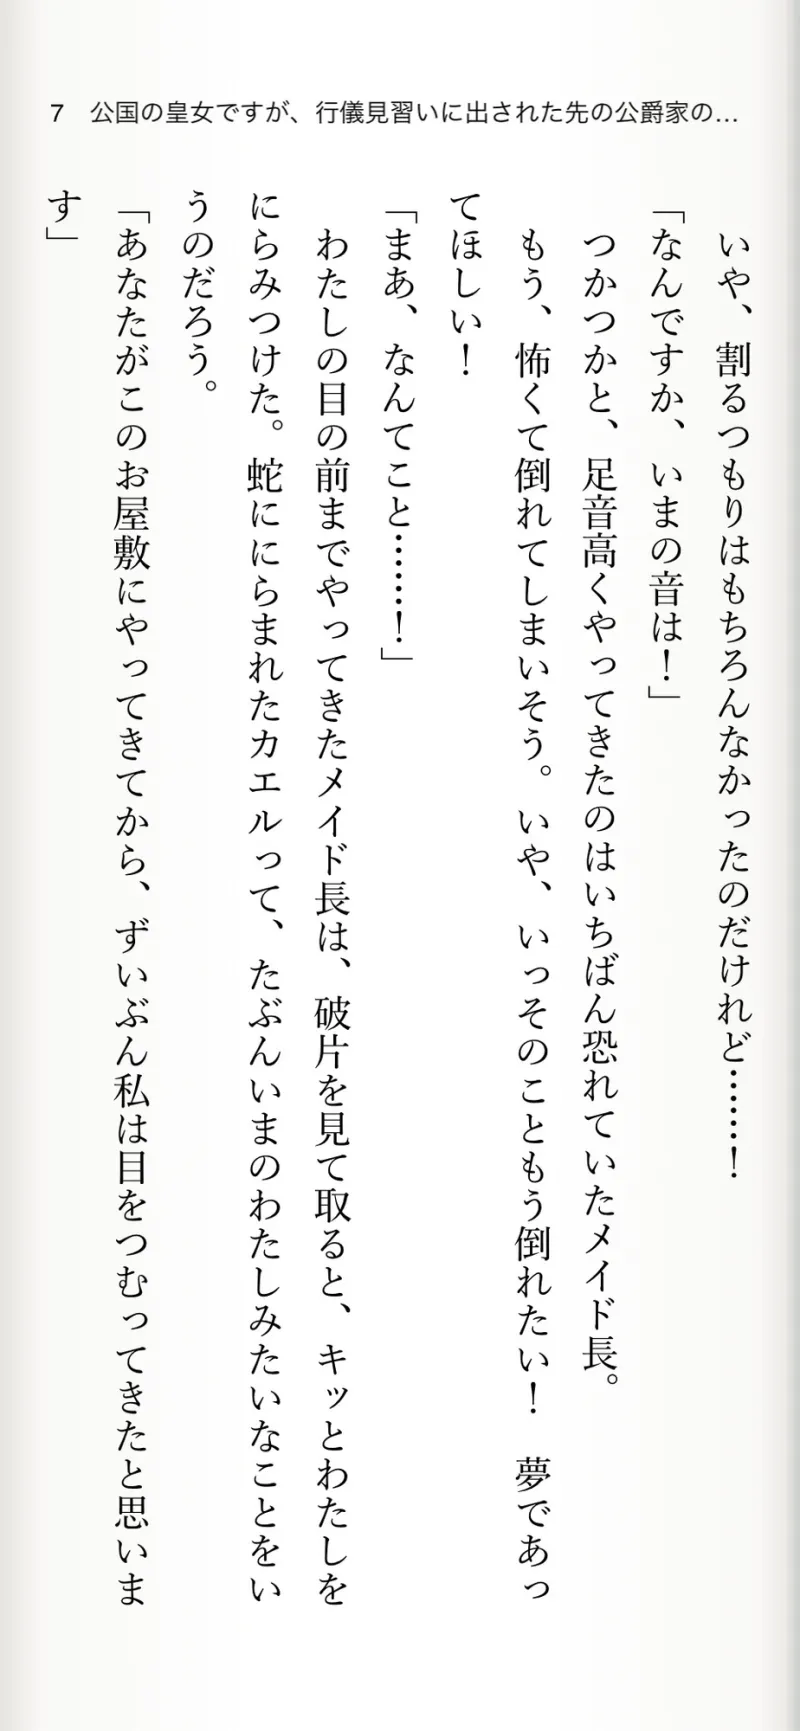 7 公国の皇女ですが、行儀見習いに出された先の公爵家の…
いや、割るつもりはもちろんなかったのだけれど……！
「なんですか、いまの音は！」
つかつかと、足音高くやってきたのはいちばん恐れていたメイド長。
もう、怖くて倒れてしまいそう。いや、いっそのこともう倒れたい！　夢であっ
てほしい！
「まあ、なんてこと……！」
わたしの目の前までやってきたメイド長は、破片を見て取ると、キッとわたしを
にらみつけた。蛇ににらまれたカエルって、たぶんいまのわたしみたいなことをい
うのだろう。
「あなたがこのお屋敷にやってきてから、ずいぶん私は目をつむってきたと思いま
す」